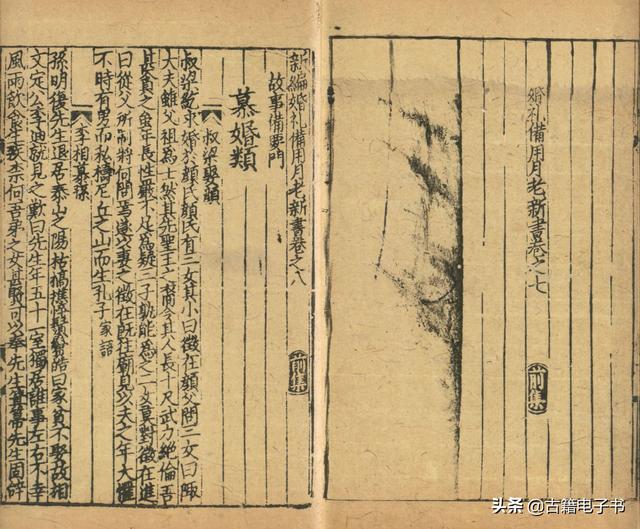 婚礼備用月老新書卷之七
前集
新編婚礼備用月老新書卷之八
前集
故事備要門
慕婚類
叔梁娶顔
叔梁紇求婚於顔氏顔氏有三女其小曰徴在顔父問三女曰陬
大夫雖父祖為士然其先聖王之裔今其人長十尺武力絶倫吾
甚貪之年長性嚴不足為疑三子孰能為之二女莫對徴在進
曰從父所制將何問焉遂以妻之徴在既往廟見以夫之年大懼
不時有男而私禱尼丘之山而生孔子 家語
李相
孫明復先生退居泰山之陽枯槁憔悴鬚鬢皓白家貧不娶故相
文定公李迪就見之歎曰先生年五十一室獨居誰事左右不幸
風雨飲食疾奈何吾弟之女甚賢可以奉先生箕箒先生固辞
头条 @古籍电子书